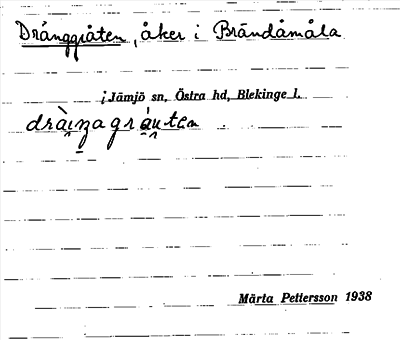 Dränggråten, åker i Brändåmåla
i Jämjö sn, Östra hd, Blekinge l.
Märta Pettersson 1938